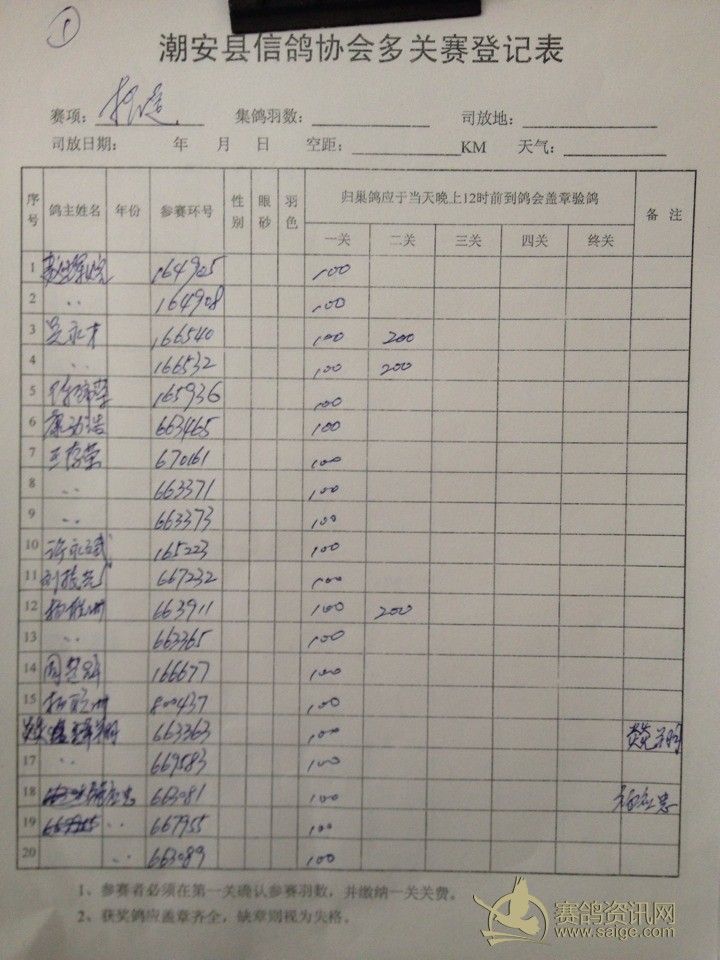 ①
潮安县信鸽协会多关赛登记表
赛项: 司放地: 集鸽羽数:
司放日期: 年 月 日 空距: KM 天气:
序号 鸽主姓名 年份 参赛环号 性别 眼砂 羽色 归巢鸽应于当天晚上12时前到鸽会盖章验鸽 备注
一关 二关 三关 四关 终关
1 164905 100
2 〃 164908 100
3 吴永才 166540 100 200
4 〃 166532 100 200
5 165936 100
6 663465 100
7 王存荣 670161 100
8 〃 663371 100
9 〃 663373 100
10 许永斌 165223 100
11 667232 100
12 663911 100 200
13 〃 663365 100
14 166677 100
15 800437 100
663363 100
17 〃 669583 100
18 663081 100
19 〃 667955 100
20 〃 663089 100
1、参赛者必须在第一关确认参赛羽数，并缴纳一关关费。
2、获奖鸽应盖章齐全，缺章则视为失格。
赛鸽资讯网
www.saige.com